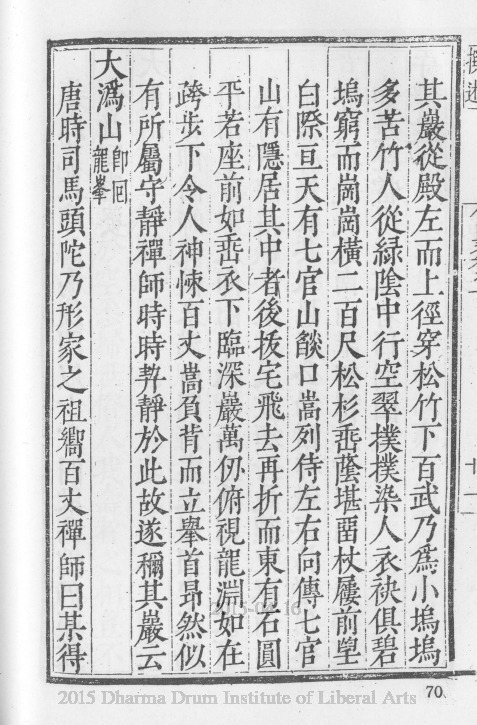 其巖從殿左而上徑穿松竹下百武乃爲小塢塢
多苦竹人從緑陰中行空翠撲撲染人衣袂俱碧
塢窮而崗崗橫二百尺松杉垂蔭堪畱杖屨前望
白際亘天有七官山燄口嵩列侍左右向傳七官
山有隱居其中者後拔宅飛去再折而東有石圓
平若座前如垂衣下臨深巖萬仞俯視龍淵如在
跨步下令人神悚百丈嵩負背而立舉首昻然似
有所屬守靜禪師時時敷靜於此故遂稱其巖云
大潙山卽囘龍峯
唐時司馬頭陀乃形家之祖嚮百丈禪師曰某得
十一
2015 Dharma Drum Institute of Liberal Arts
70